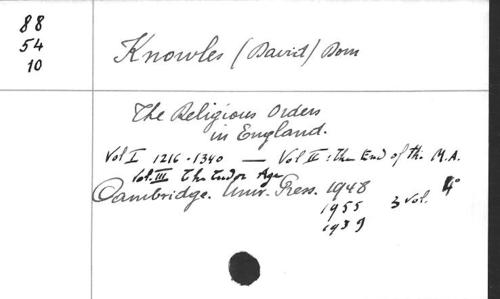 88
54
10
Knowles (David) Dom
The Religious Orders
in England.
Vol I 1216-1340 — Vol II: the End of the M.A.
Vol. III The tudor Age
Cambridge. Univ. Press. 1948 4°
1955 3 vol.
1959